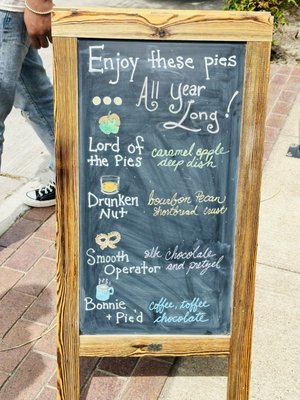 Enjoy these pies
All Year
Long!
Lord of
the Pies
caramel apple
deep dish
Drunken
Nut
bourbon Pecan
Shortbread crust
Smooth
Operator
silk chocolate
and pretzel
Bonnie
+ Pie'd
coffee, toffee
chocolate